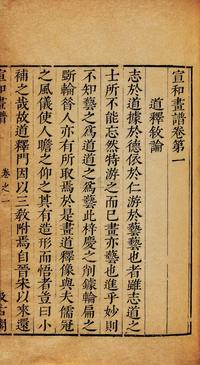 宣和畫譜卷第一
道釋敘論
志於道據於德依於仁游於藝藝也者雖志道之
士所不能忘然特游之而已畫亦藝也進乎妙則
不知藝之為道道之為藝此梓慶之削鐻輪扁之
斲輪昔人亦有所取焉於是畫道釋像與夫儒冠
之風儀使人瞻之仰之其有造形而悟者豈曰小
補之哉故道釋門因以三教附焉自晉宋以來還
宣和畫譜
卷之一
汲古閣